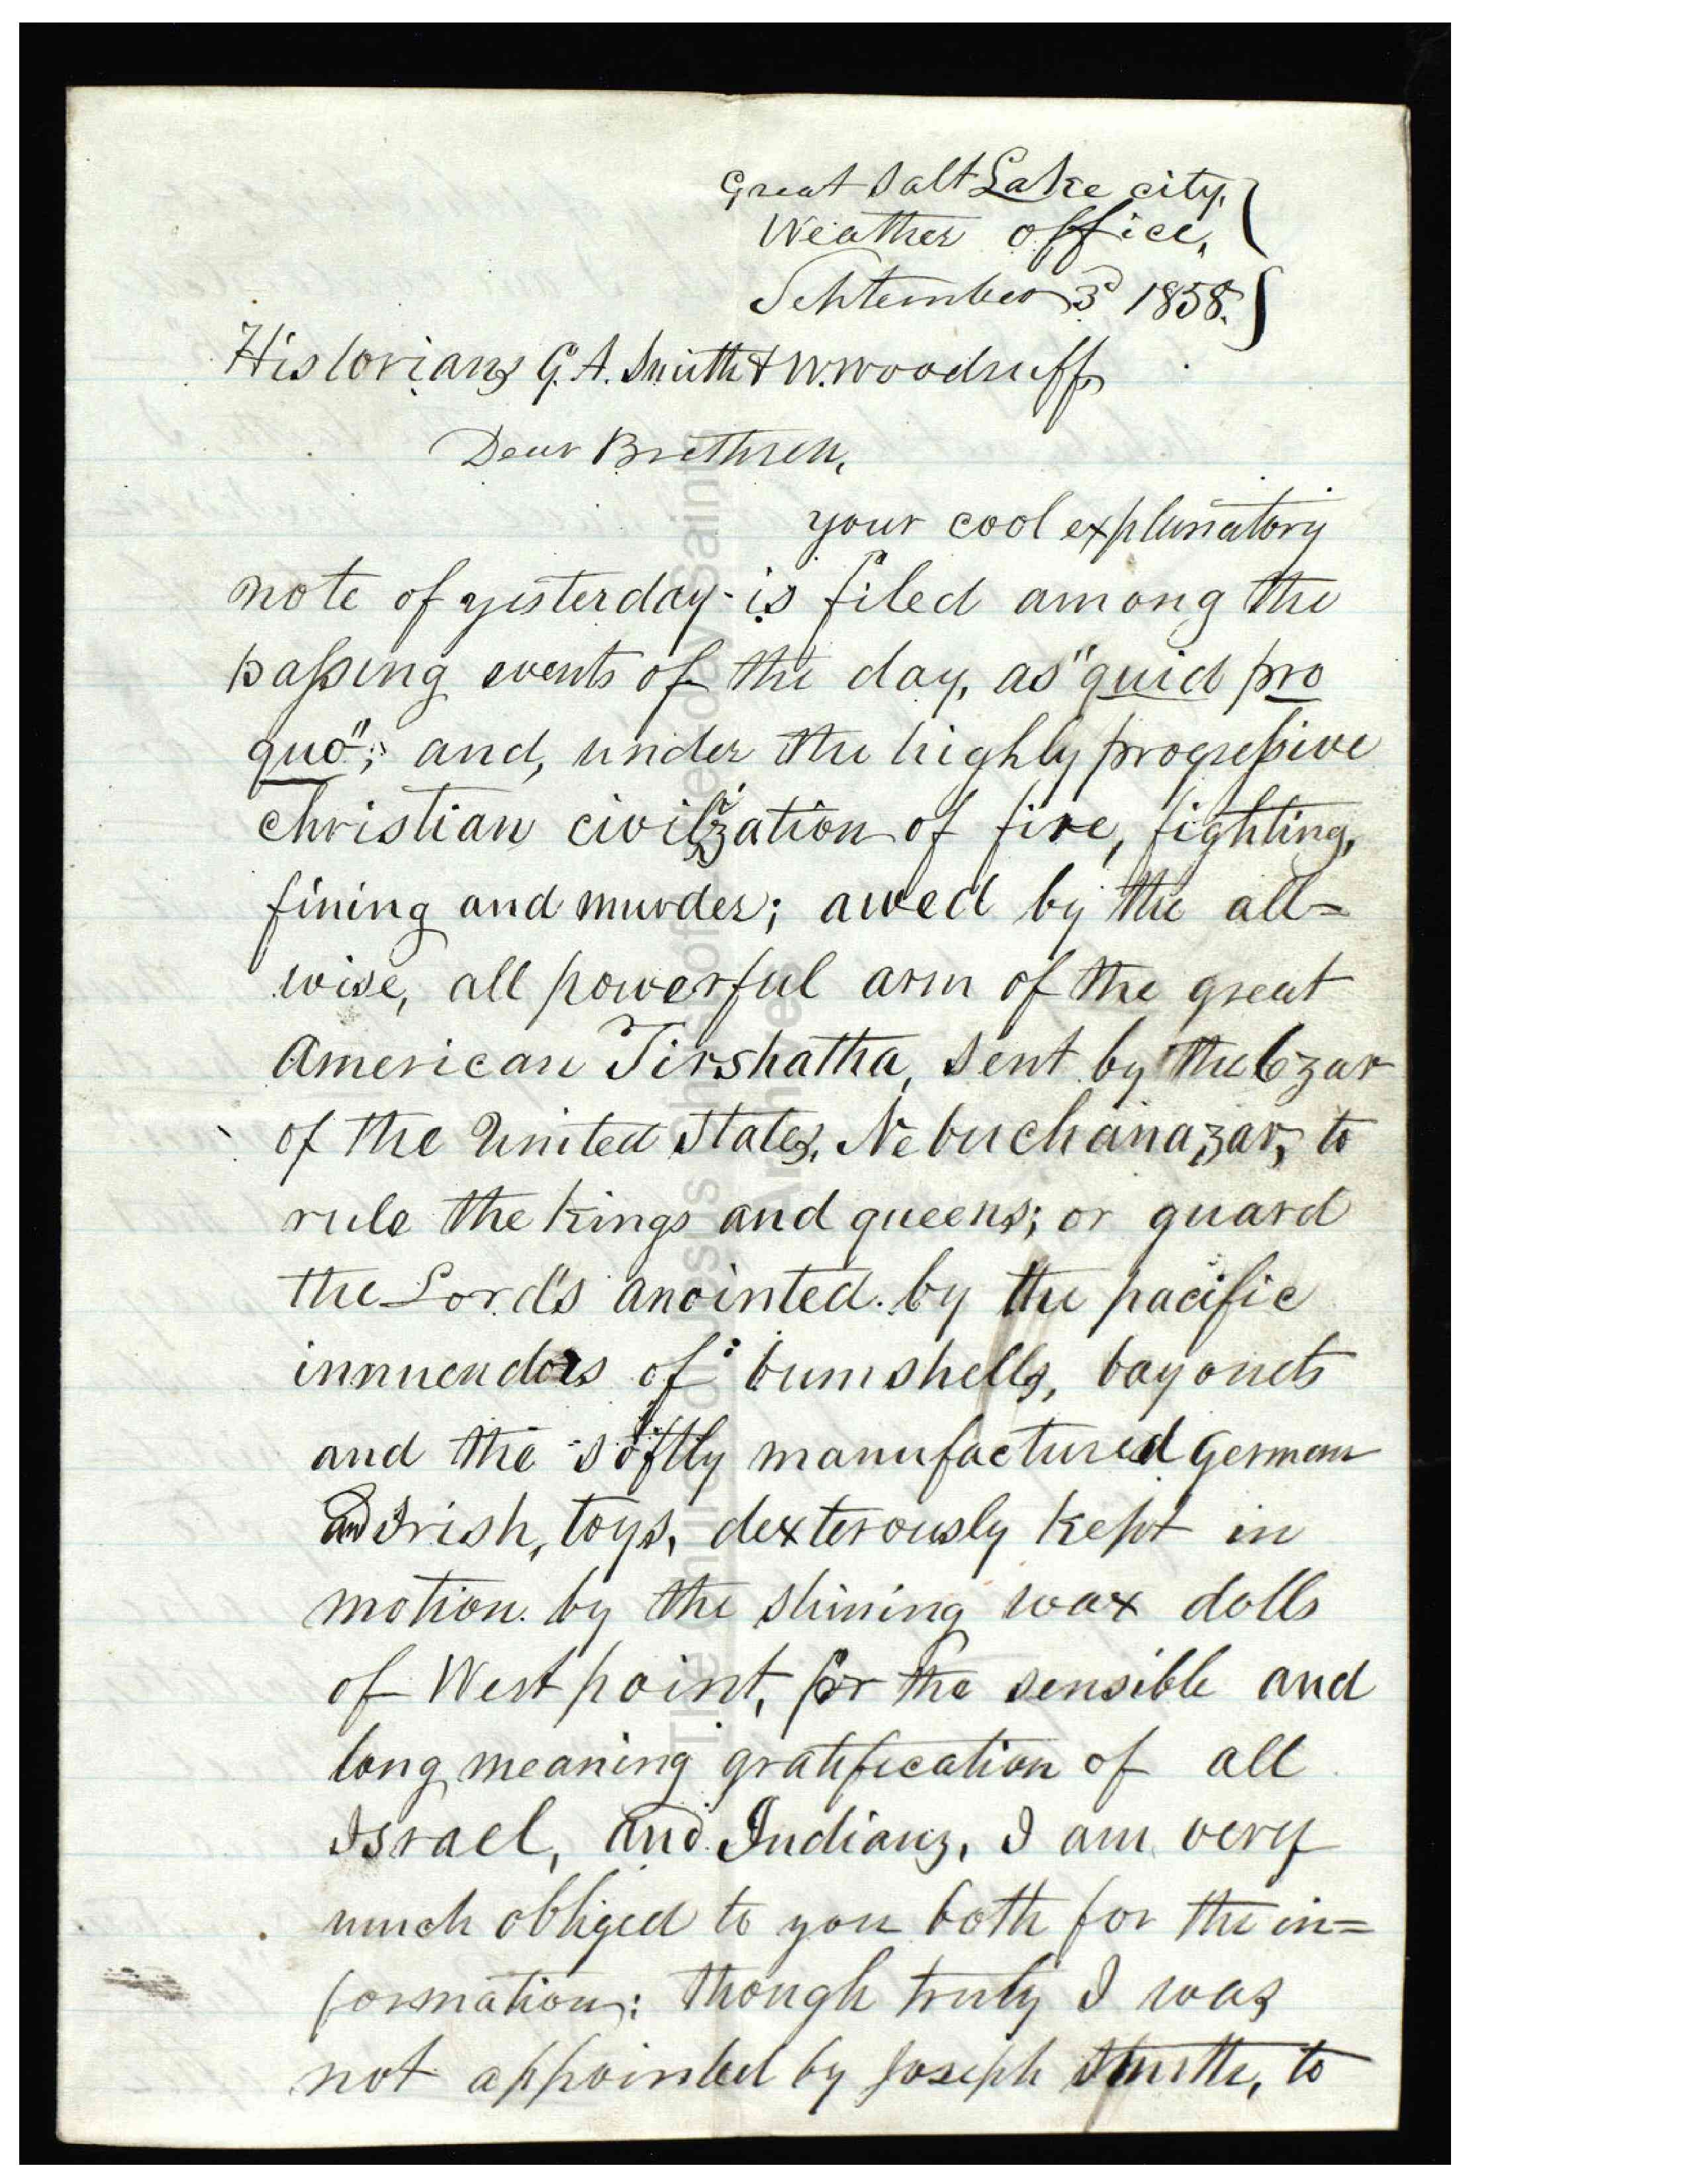 Great Salt Lake city,
Weather office,
September 3d 1858.
Historians G. A. Smith & W. Woodruff,
Dear Brethren,
your cool explanatory
note of yesterday is filed among the
passing events of the day, as "quid pro
quo"; and, under the highly progressive
christian civilization of fire, fighting,
fining and murder; awed by the all=
wise, all powerful arm of the great
American Tirshatha, sent by the Czar
of the United States, Nebuchanazar, to
rule the kings and queens; or guard
the Lord's anointed by the pacific
innuendoes of bumshells, bayonets
and the softly manufactured German
and Irish, toys, dexterously kept in
motion by the shining wax dolls
of West point, for the sensible and
long meaning gratification of all
Israel, and Indians, I am very
much obliged to you both for the in=
formation: though truly I was
not appointed by Joseph Smith, to
The Church of Jesus Christ of Latter-day Saints
Archives